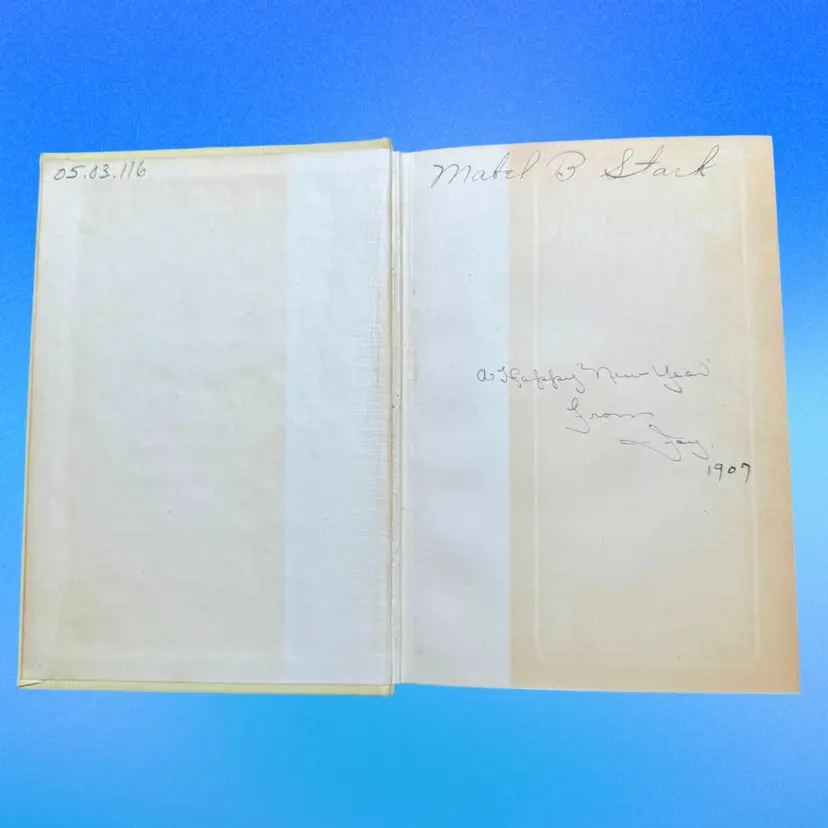 05.03.116
Mabel B Stark
A "Happy New Year"
From
Jay.
1907